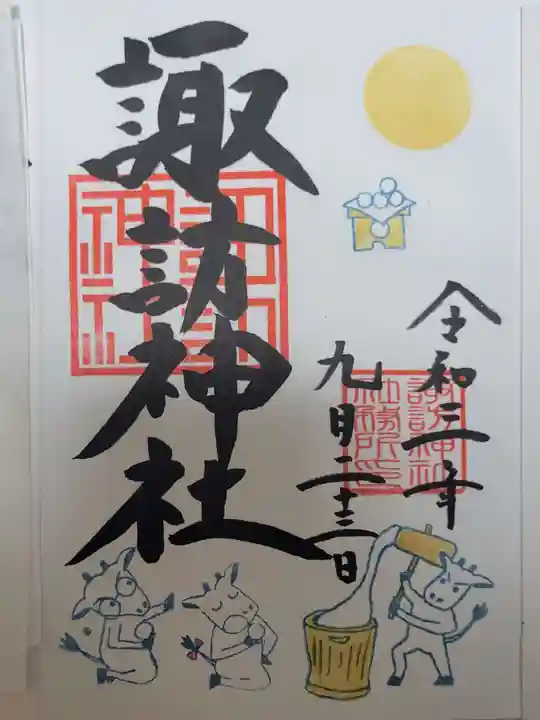 諏訪神社
令和三年
九月二十三日
諏訪神社
社務所印
諏訪神社